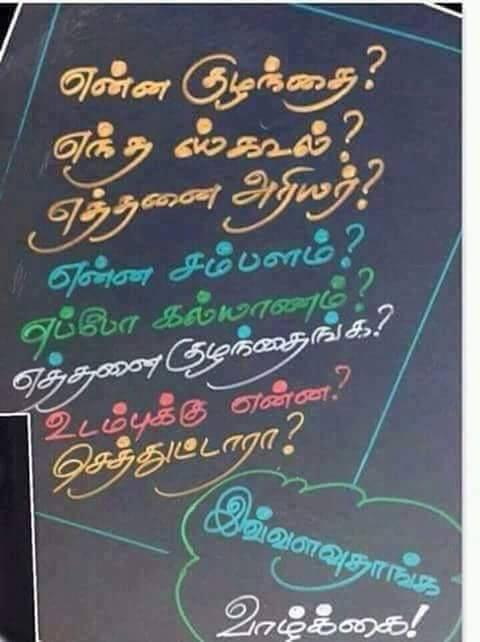 என்ன குழந்தை?
எந்த ஸ்கூல்?
எத்தனை அரியர்?
என்ன சம்பளம்?
எப்போ கல்யாணம்?
எத்தனை குழந்தைங்க?
உடம்புக்கு என்ன?
செத்துட்டாரா?
இவ்வளவுதாங்க
வாழ்க்கை!